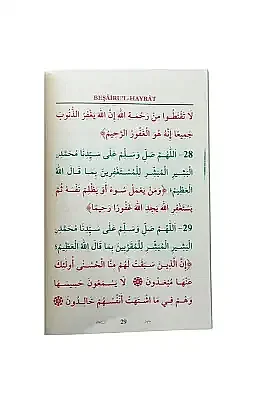 BEŞÂİRU'L-HAYRÂT
لَا تَقْنَطُوا مِنْ رَحْمَةِ اللهِ إِنَّ اللهَ يَغْفِرُ الذُّنُوبَ
جَمِيعًا إِنَّهُ هُوَ الْغَفُورُ الرَّحِيمُ﴾
28- اَللّٰهُمَّ صَلِّ وَسَلِّمْ عَلَى سَيِّدِنَا مُحَمَّدٍ
الْبَشِيرِ الْمُبَشِّرِ لِلْمُسْتَغْفِرِينَ بِمَا قَالَ اللهُ
الْعَظِيمُ ﴿وَمَنْ يَعْمَلْ سُوءًا أَوْ يَظْلِمْ نَفْسَهُ ثُمَّ
يَسْتَغْفِرِ اللهَ يَجِدِ اللهَ غَفُورًا رَحِيمًا﴾
29- اَللّٰهُمَّ صَلِّ وَسَلِّمْ عَلَى سَيِّدِنَا مُحَمَّدٍ
الْبَشِيرِ الْمُبَشِّرِ لِلْمُقَرَّبِينَ بِمَا قَالَ اللهُ الْعَظِيمُ
﴿إِنَّ الَّذِينَ سَبَقَتْ لَهُمْ مِنَّا الْحُسْنَى أُولٰئِكَ
عَنْهَا مُبْعَدُونَ ۞ لَا يَسْمَعُونَ حَسِيسَهَا
وَهُمْ فِي مَا اشْتَهَتْ أَنْفُسُهُمْ خَالِدُونَ ۞
29